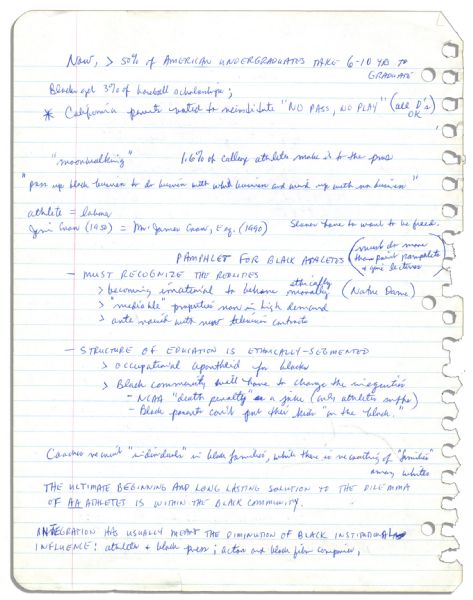 Now, > 50% of AMERICAN UNDERGRADUATES TAKE 6-10 YRS TO
GRADUATE
Blacks get 3% of baseball scholarships;
* California parents voted to reinstitute "NO PASS, NO PLAY" (all D's
OK
"moonwalking" 1.6% of college athletes make it to the pros
"pass up black business to do business with white business and wind up with no business"
athlete = labor
Jim Crow (1950) = Mr. James Crow, Esq. (1990) Slaves have to want to be freed.
PAMPHLET FOR BLACK ATHLETES (must do more
than print pamphlets
& give lectures)
- MUST RECOGNIZE THE REALITIES
> becoming irrational to behave ethically
morally (Notre Dame)
> "mediable" properties now in high demand
> ante raised with new television contracts
- STRUCTURE OF EDUCATION IS ETHNICALLY-SEGMENTED
> occupational apartheid for blacks
> Black community will have to change the inequities
- NCAA "death penalty" a joke (only athletes suffer)
- Black parents could put their kids "on the block."
Coaches recruit "individuals" in black families, while there is recruiting of "families"
among whites
THE ULTIMATE BEGINNING AND LONG LASTING SOLUTION TO THE DILEMMA
OF AA ATHLETES IS WITHIN THE BLACK COMMUNITY.
INTEGRATION HAS USUALLY MEANT THE DIMINUTION OF BLACK INSTITUTIONAL
INFLUENCE: athletes & black press; actors and black film companies,